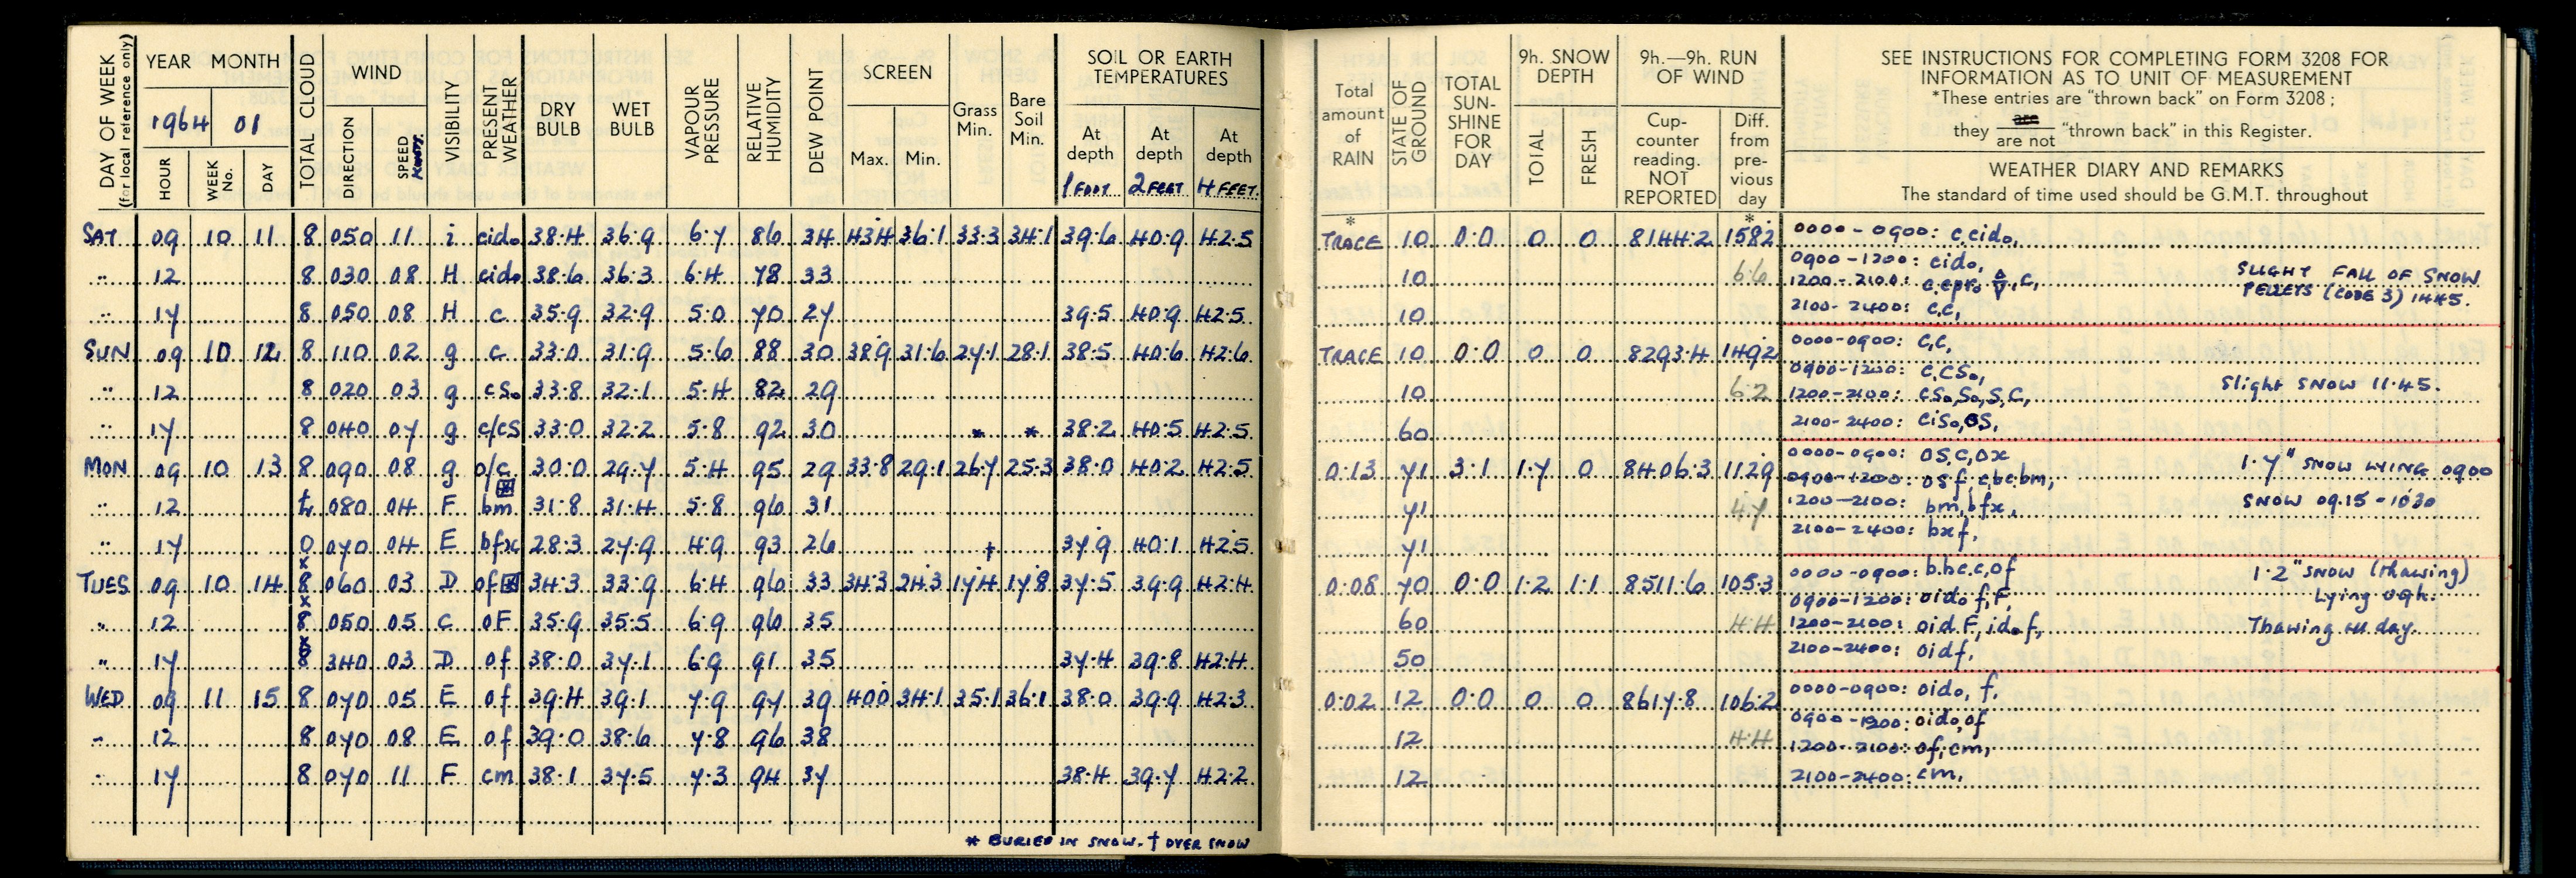 DAY OF WEEK (for local reference only) YEAR MONTH TOTAL CLOUD WIND VISIBILITY PRESENT WEATHER DRY BULB WET BULB VAPOUR PRESSURE RELATIVE HUMIDITY DEW POINT SCREEN Grass Min. Bare Soil Min. SOIL OR EARTH TEMPERATURES
1964 01
HOUR WEEK No. DAY DIRECTION SPEED KNOTS. Max. Min. At depth 1 FOOT At depth 2 FEET At depth 4 FEET.
SAT 09 10 11 8 050 11 i cido 38.4 36.9 6.7 86 34 43.4 36.1 33.3 34.1 39.6 40.9 42.5
" 12 8 030 08 H cido 38.6 36.3 6.4 78 33
" 17 8 050 08 H c 35.9 32.9 5.0 70 27 39.5 40.9 42.5
SUN 09 10 12 8 110 02 g c 33.0 31.9 5.6 88 30 38.9 31.6 27.1 28.1 38.5 40.6 42.6
" 12 8 020 03 g cso 33.8 32.1 5.4 82 29
" 17 8 040 07 g c/cs 33.0 32.2 5.8 92 30 * * 38.2 40.5 42.5
MON 09 10 13 8 090 08 g o/c 30.0 29.7 5.4 95 29 33.8 29.1 26.7 25.3 38.0 40.2 42.5
" 12 080 04 F bm 31.8 31.4 5.8 96 31
" 17 0 070 04 E bfx 28.3 27.9 4.9 93 26 † 37.9 40.1 42.5
TUES 09 10 14 8 060 03 D of 34.3 33.9 6.4 96 33 34.3 24.3 17.4 17.8 37.5 39.9 42.4
" 12 8 050 05 C oF 35.9 35.5 6.9 96 35
" 17 8 340 03 D of 38.0 37.1 6.9 91 35 37.4 39.8 42.4
WED 09 11 15 8 070 05 E of 39.4 39.1 7.9 97 39 40.0 34.1 35.1 36.1 38.0 39.9 42.3
" 12 8 070 08 E of 39.0 38.6 7.8 96 38
" 17 8 070 11 F cm 38.1 37.5 7.3 94 37 38.4 39.7 42.2
* BURIED IN SNOW. † OVER SNOW
Total amount of RAIN STATE OF GROUND TOTAL SUN-SHINE FOR DAY 9h. SNOW DEPTH TOTAL FRESH 9h.—9h. RUN OF WIND Cup-counter reading. NOT REPORTED Diff. from pre-vious day
SEE INSTRUCTIONS FOR COMPLETING FORM 3208 FOR
INFORMATION AS TO UNIT OF MEASUREMENT
*These entries are "thrown back" on Form 3208;
they are / are not "thrown back" in this Register.
WEATHER DIARY AND REMARKS
The standard of time used should be G.M.T. throughout
* *
TRACE 10 0.0 0 0 8144.2 158.2 0000-0900: c,cido,
10 6.6 0900-1200: cido, SLIGHT FALL OF SNOW
1200-2100: PELLETS (CODE 3) 1445.
10 2100-2400: c,c,
TRACE 10 0.0 0 0 8293.4 149.2 0000-0900: c,c,
0900-1200: c,cso,
10 6.2 1200-2100: cso,so,s,c, Slight SNOW 11.45.
60 2100-2400:
0.13 71 3.1 1.7 0 8406.3 112.9 0000-0900: 1.7" SNOW LYING 0900
0900-1200:
71 4.7 1200-2100: bm,bfx, SNOW 09.15-1030
71 2100-2400: bxf,
0.08 70 0.0 1.2 1.1 8511.6 105.3 0000-0900: b.bc.c,of 1.2" SNOW (thawing)
0900-1200: oido f,F, Lying 09h.
60 4.4 1200-2100: oid F,idof, Thawing all day.
50 2100-2400: oidf,
0.02 12 0.0 0 0 8617.8 106.2 0000-0900: oido, f,
0900-1200: oido,of
12 4.4 1200-2100: of,cm,
12 2100-2400: cm,